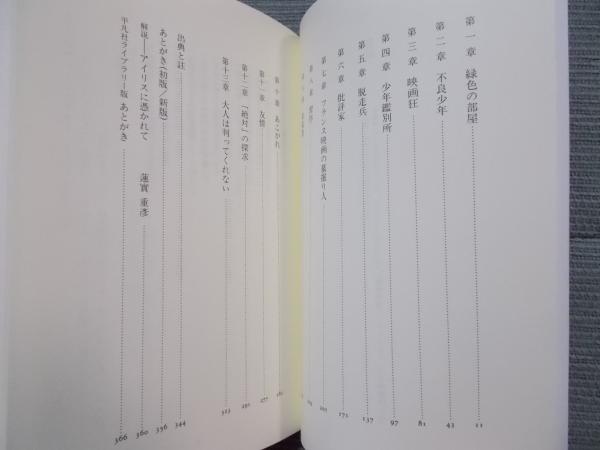 第一章 緑色の部屋 11
第二章 不良少年 43
第三章 映画狂 81
第四章 少年鑑別所 97
第五章 脱走兵 137
第六章 批評家 171
第七章 フランス映画の墓掘り人
第八章
第十章 あこがれ
第十一章 友情 277
第十二章 「絶対」の探求 291
第十三章 大人は判ってくれない 323
出典と註 344
あとがき(初版/新版) 356
解説──アイリスに憑かれて 蓮實重彦 360
平凡社ライブラリー版 あとがき 366